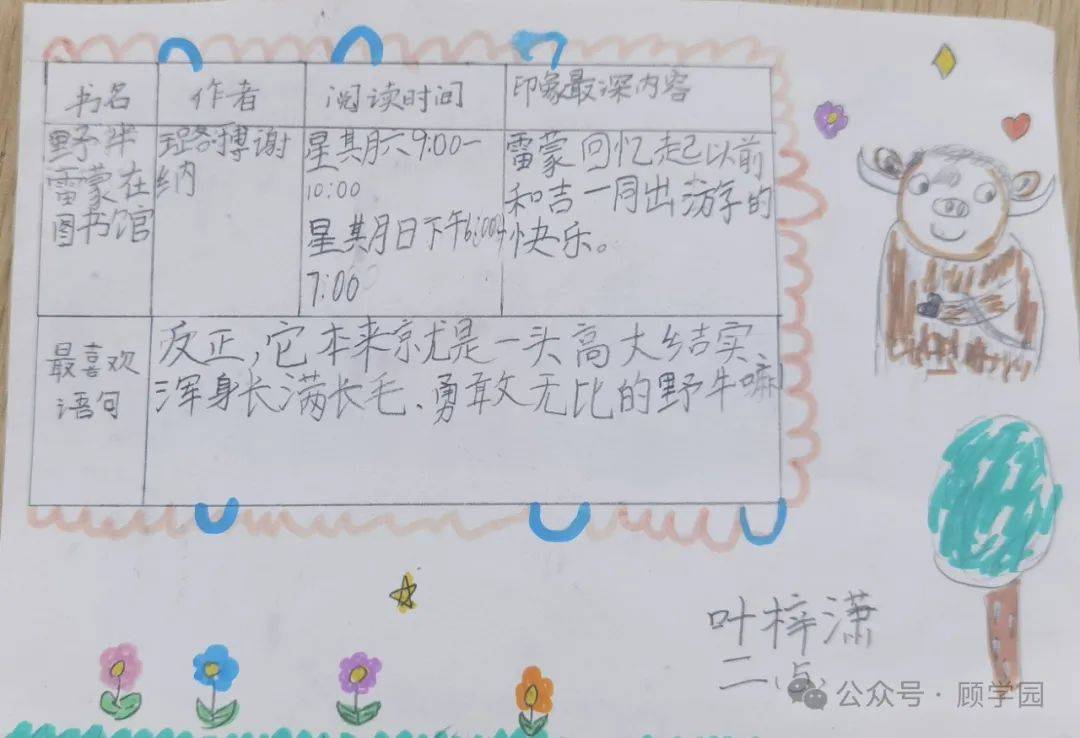 书名 作者 阅读时间 印象最深内容
野半
雷蒙在
图书馆
璐博谢
纳
星其月六9:00-
10:00
星其月日下午6:00-
7:00
雷蒙回忆起以前
和吉一同出游学的
快乐。
最喜欢
语句
反正,它本来就是一头高大结实、
浑身长满长毛、勇敢无比的野牛嘛
叶梓潇
二、(5)
公众号·顾学园